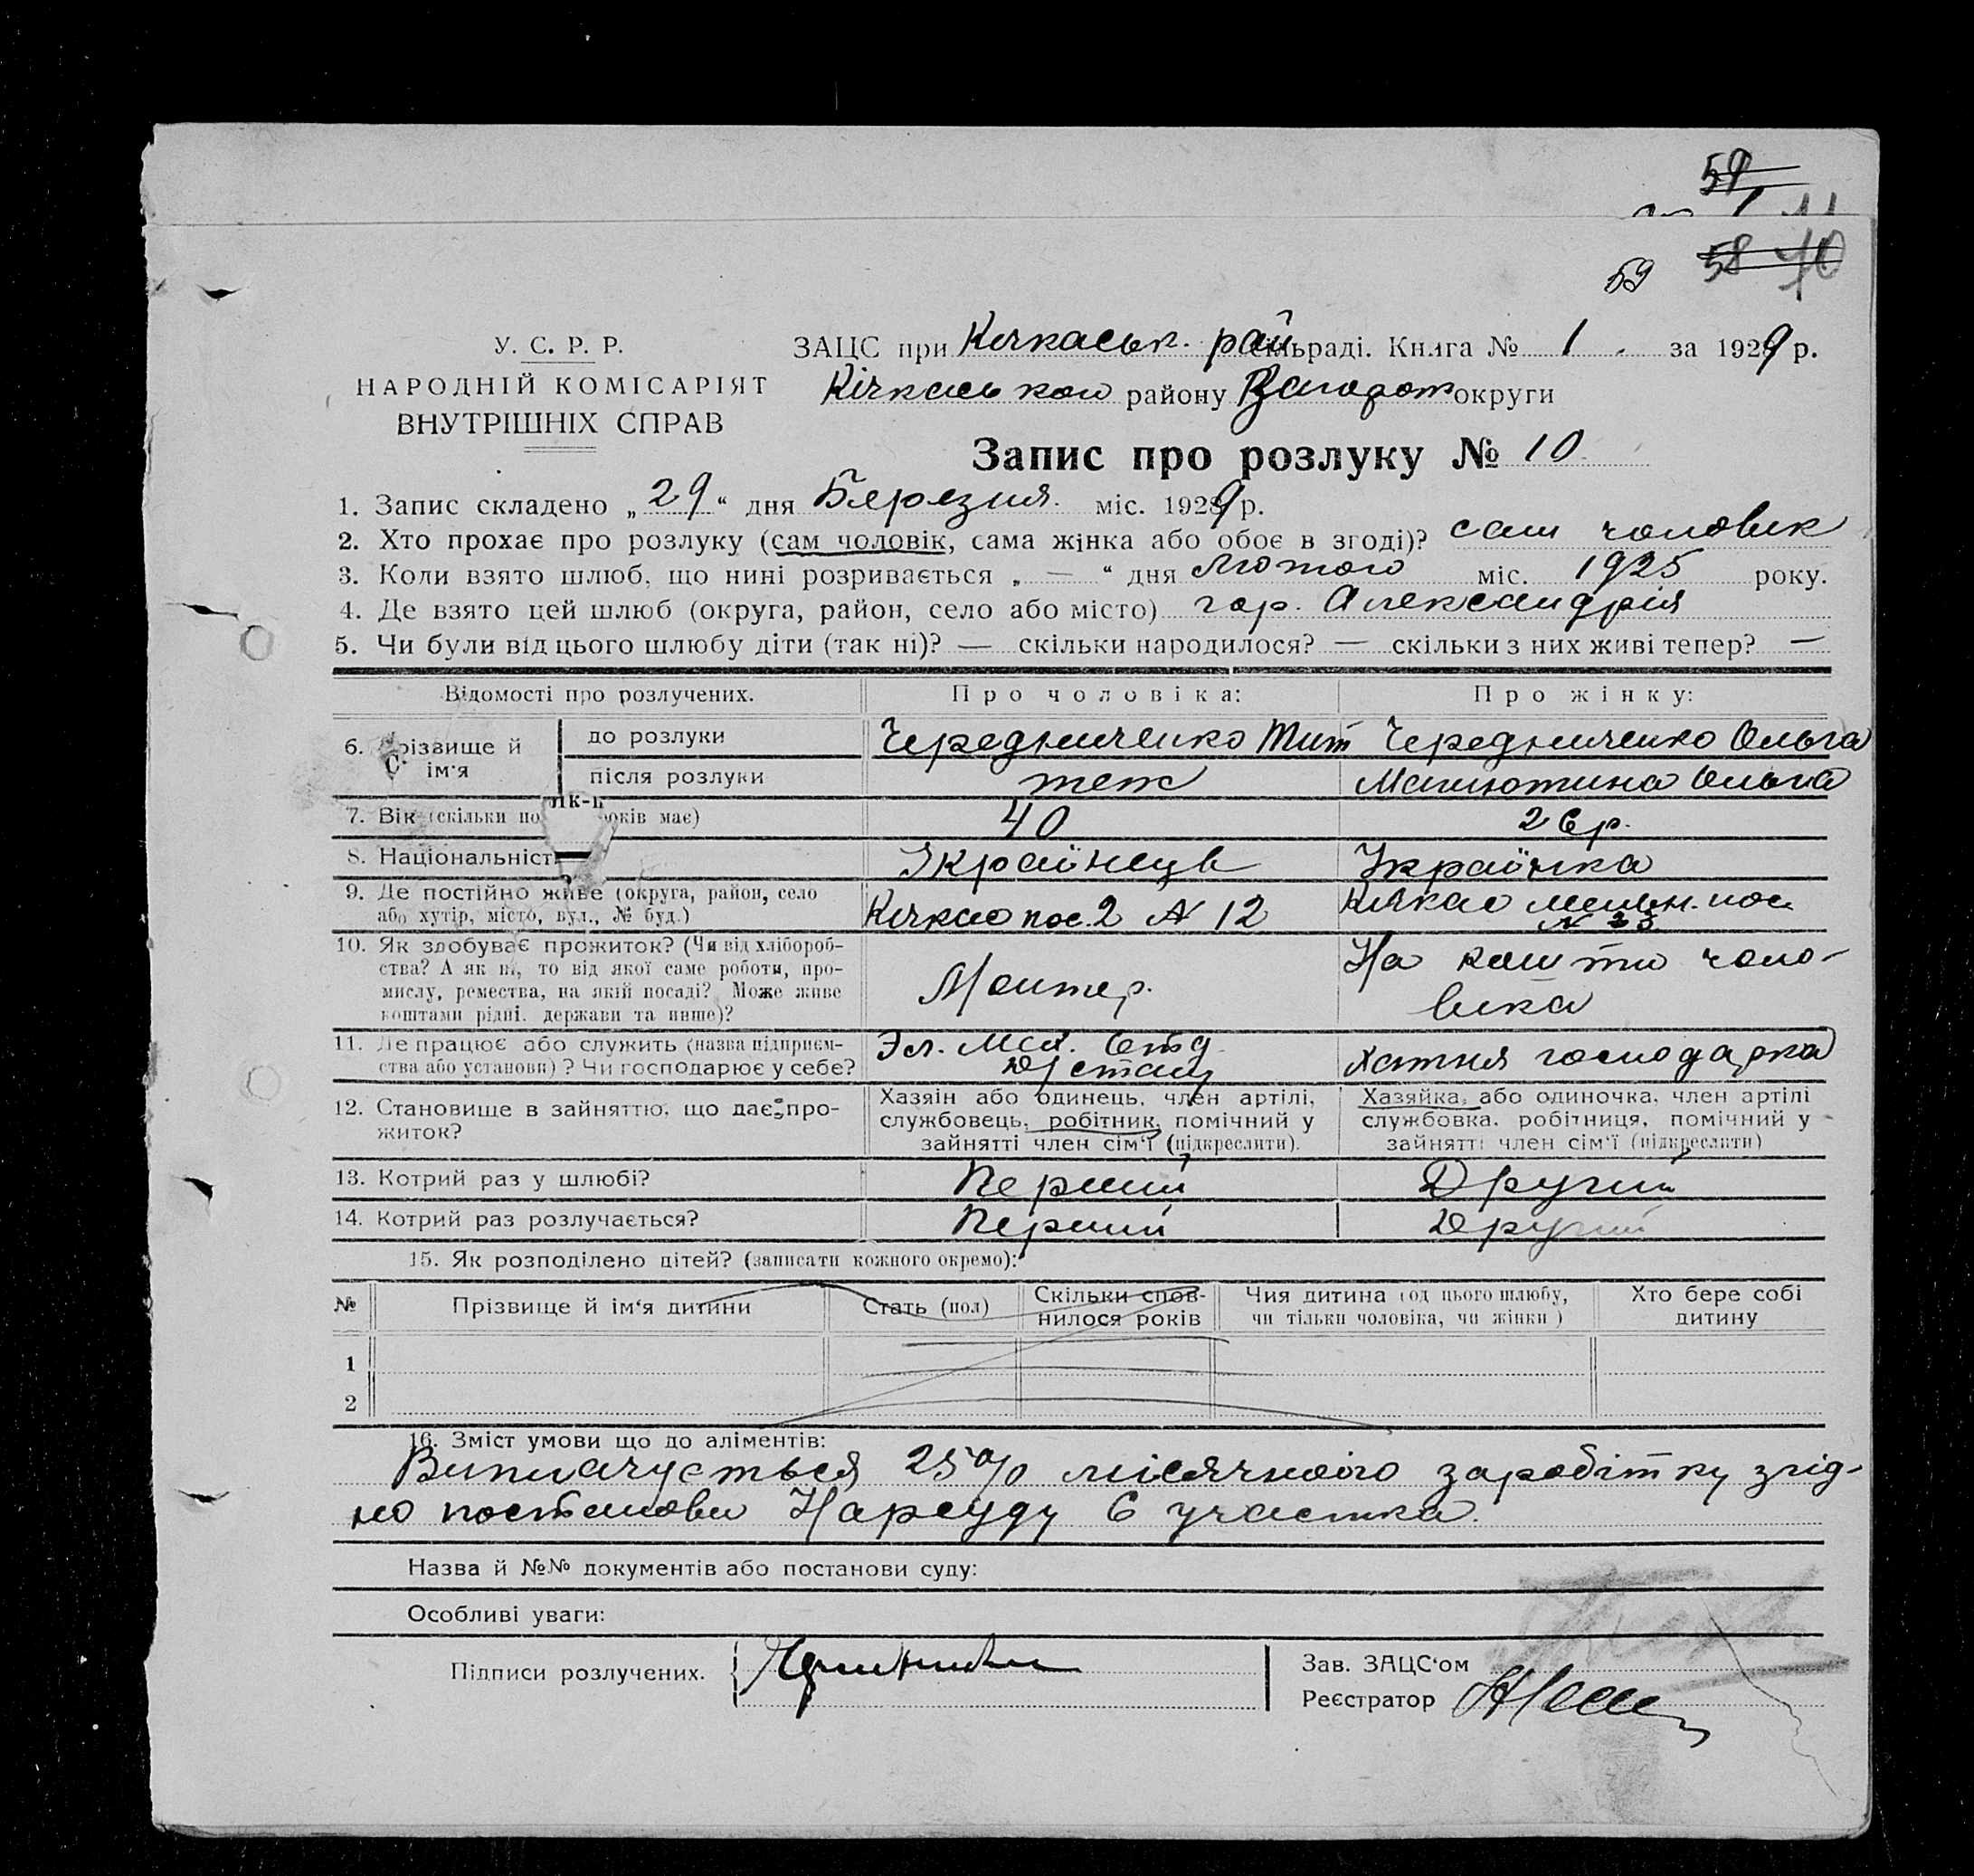 59
59 58 70
У. С. Р. Р.
НАРОДНІЙ КОМІСАРІЯТ
ВНУТРІШНІХ СПРАВ
ЗАЦС при Кічкаськ. рай сільраді. Книга № 1. за 1929 р.
Кічкаського району Запорож округи
Запис про розлуку № 10
1. Запис складено „29“ дня Березня міс. 1929 р.
2. Хто прохає про розлуку (сам чоловік, сама жінка або обоє в згоді)? сам чоловік
3. Коли взято шлюб, що нині розривається „ — “ дня Лютого міс. 1925 року.
4. Де взято цей шлюб (округа, район, село або місто) гор. Александрія
5. Чи були від цього шлюбу діти (так ні)? — скільки народилося? — скільки з них живі тепер? —
Відомості про розлучених. Про чоловіка: Про жінку:
6. Прізвище й ім'я до розлуки Чередниченко Тит Чередниченко Ольга
після розлуки теж Ольга
7. Вік (скільки по років має) 40 26 р.
8. Національніст Українець Українка
9. Де постійно живе (округа, район, село або хутір, місто, вул., № буд.) Кічкас пос. 2 № 12 Кічкас пос.
10. Як здобуває прожиток? (Чи від хлібороб-
ства? А як ні, то від якої саме роботи, про-
мислу, ремества, на якій посаді? Може живе
коштами рідні, держави та инше)? Монтер. На кошти чоло-
віка
11. Де працює або служить (назва підприєм-
ства або установи)? Чи господарює у себе? Эл. Мех. Отд хатня господарка
12. Становище в зайняттю, що дає про-
житок? Хазяін або одинець, член артілі,
службовець, робітник, помічний у
зайнятті член сім'ї (підкреслити). Хазяйка, або одиночка, член артілі
службовка, робітниця, помічний у
зайнятті член сім'ї (підкреслити)
13. Котрий раз у шлюбі? Перший Другий
14. Котрий раз розлучається? Перший Другий
15. Як розподілено дітей? (записати кожного окремо):
№ Прізвище й ім'я дитини Стать (пол) Скільки спов-
нилося років Чия дитина (од цього шлюбу,
чи тільки чоловіка, чи жінки) Хто бере собі
дитину
1
2
16. Зміст умови що до аліментів:
Виплачується 25% місячного заробітку згід-
но постанови Нарсуду 6 участка.
Назва й №№ документів або постанови суду:
Особливі уваги:
Підписи розлучених.
Зав. ЗАЦС'ом
Реєстратор